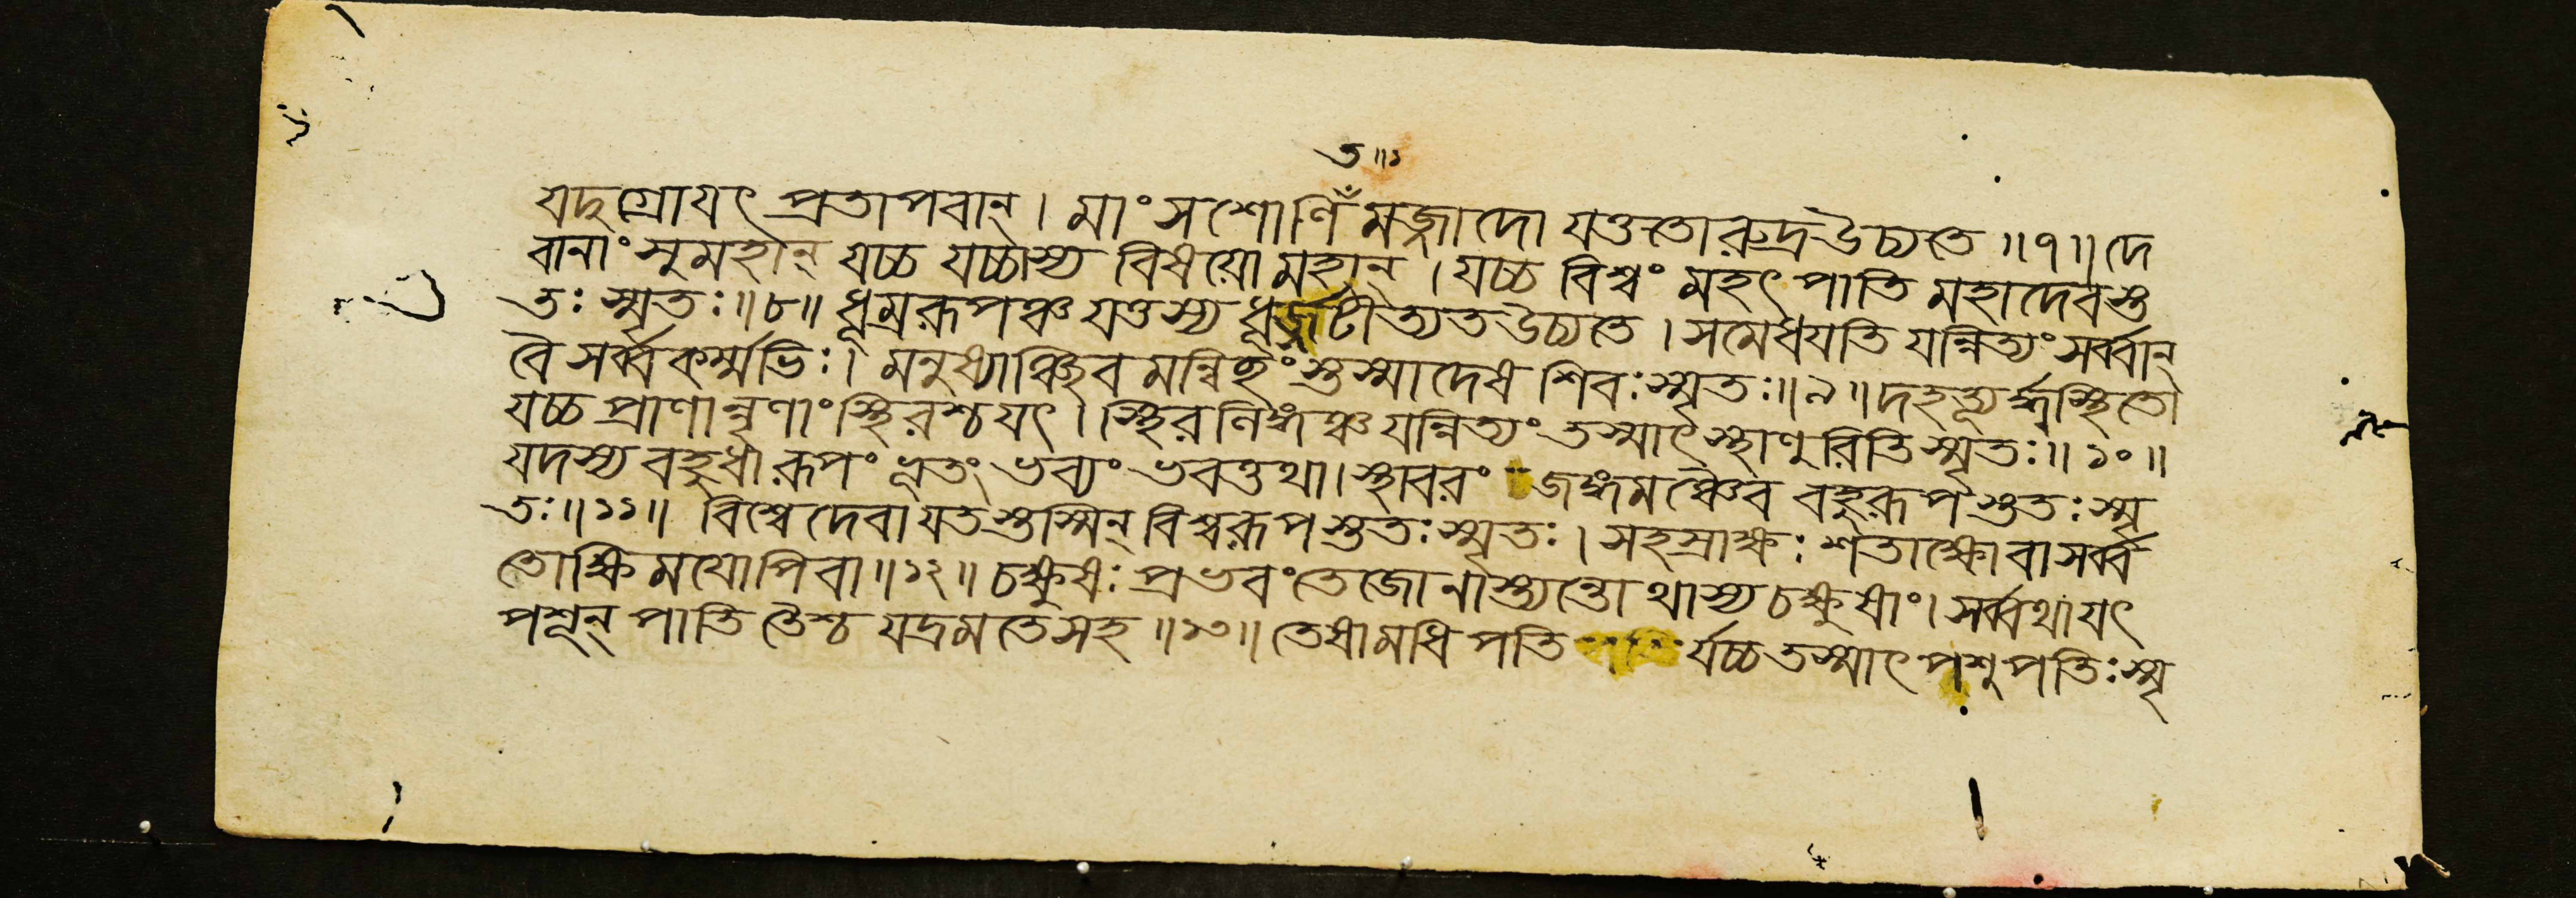 ত॥১
যদুগ্রোযৎ প্রতাপবান্। মাংসশোণিঁমজ্জাদো যত্ততোরুদ্রউচ্যতে॥৭॥দে
বানাং সুমহান্ যচ্চ যচ্চাস্য বিষয়োমহান্। যচ্চ বিশ্বং মহৎ পাতি মহাদেবস্ত
তঃ স্মৃতঃ॥৮॥ ধূম্ররূপঞ্চ যত্তস্য ধূর্জ্জটীত্যত উচ্যতে। সমেধযতি যন্নিত্যং সর্ব্বান্
বৈ সর্ব্বকর্ম্মভিঃ। মনুষ্যাঞ্ছিব মন্বিচ্ছংস্তস্মাদেষ শিবঃ স্মৃতঃ॥৯॥দহত্যূর্দ্ধ্বস্থিতো
যচ্চ প্রাণান্নৃণাং স্থিরশ্চযৎ। স্থিরলিঙ্গঞ্চ যন্নিত্যং তস্মাৎ স্থাণুরিতি স্মৃতঃ॥১০॥
যদস্য বহুধা রূপং ভূতং ভব্যং ভবত্তথা। স্থাবরং জঙ্গমঞ্চৈব বহুরূপস্ততঃ স্মৃ
তঃ॥১১॥ বিশ্বে দেবা যতস্তস্মিন্ বিশ্বরূপস্ততঃ স্মৃতঃ। সহস্রাক্ষঃ শতাক্ষো বা সর্ব্ব
তোক্ষিময়োপিবা॥১২॥ চক্ষুষঃ প্রভবং তেজো নাস্ত্যন্তোথাস্য চক্ষুষাং। সর্ব্বথা যৎ
পশূন্ পাতি তৈশ্চ যদ্রমতে সহ॥১৩॥ তেষামধিপতি র্যচ্চ তস্মাৎ পশুপতিঃ স্মৃ